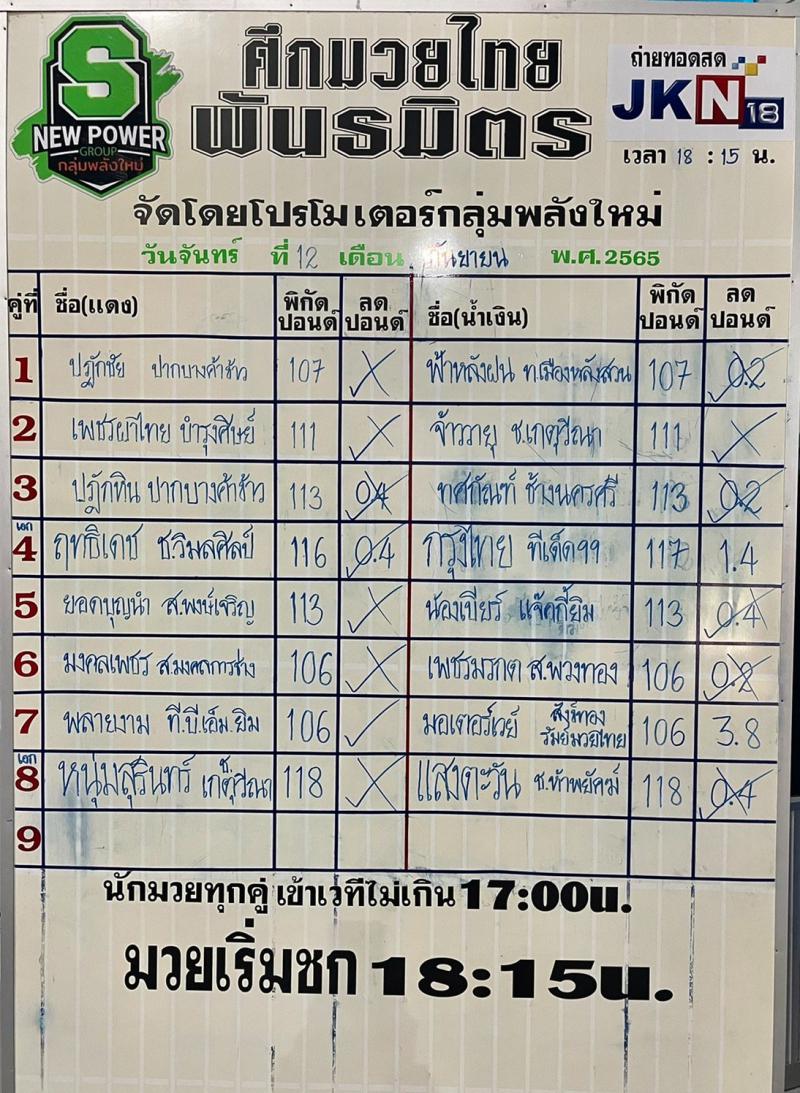 S
NEW POWER
GROUP
กลุ่มพลังใหม่
ศึกมวยไทย
พันธมิตร
ถ่ายทอดสด
JKN18
เวลา 18 : 15 น.
จัดโดยโปรโมเตอร์กลุ่มพลังใหม่
วันจันทร์ ที่ 12 เดือน กันยายน พ.ศ. 2565
คู่ที่ ชื่อ(แดง) พิกัดปอนด์ ลดปอนด์ ชื่อ(น้ำเงิน) พิกัดปอนด์ ลดปอนด์
1 ปฎักชัย ปากบางค้าข้าว 107 ฟ้าหลังฝน ท.เมืองหลังสวน 107 0.2
2 เพชรผาไทย บำรุงศิษย์ 111 จ้าววายุ ช.เกตุวีณา 111
3 ปฎักทิน ปากบางค้าข้าว 113 0.4 ทศกัณฑ์ ช้างนครศรี 113 0.2
เอก
4 ฤทธิเดช ช.วิมลศิลป์ 116 0.4 กรุงไทย ทีเด็ด99 117 1.4
5 ยอดบุญนำ ส.พงษ์เจริญ 113 น้องเบียร์ แจ๊คกี้ยิม 113 0.4
6 มงคลเพชร ส.มงคลการช่าง 106 เพชรมรกต ส.พวงทอง 106 0.2
7 พลายงาม ที.บี.เอ็ม.ยิม 106 มอเตอร์เวย์ สังข์ทองรัมย์มวยไทย 106 3.8
เอก
8 หนุ่มสุรินทร์ ช.เกตุวีณา 118 แสงตะวัน ช.ห้าพยัคฆ์ 118 0.4
9
นักมวยทุกคู่ เข้าเวทีไม่เกิน 17:00น.
มวยเริ่มชก 18:15น.